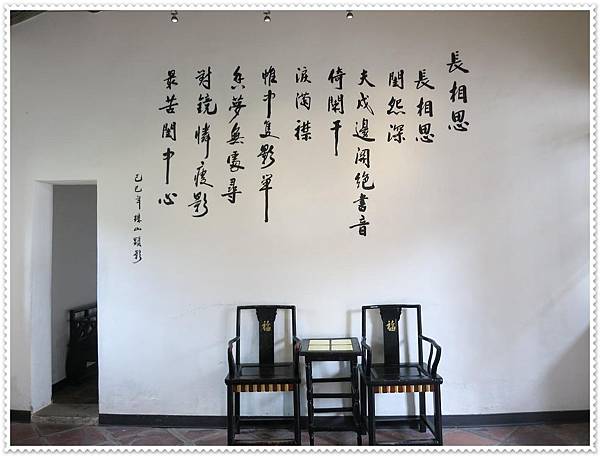 長相思
長相思
閨怨深
夫戍邊關絕書音
倚闌干
淚滿襟
帷中隻影單
香夢無處尋
對鏡憐瘦影
最苦閨中心
己巳年珠山
福
福